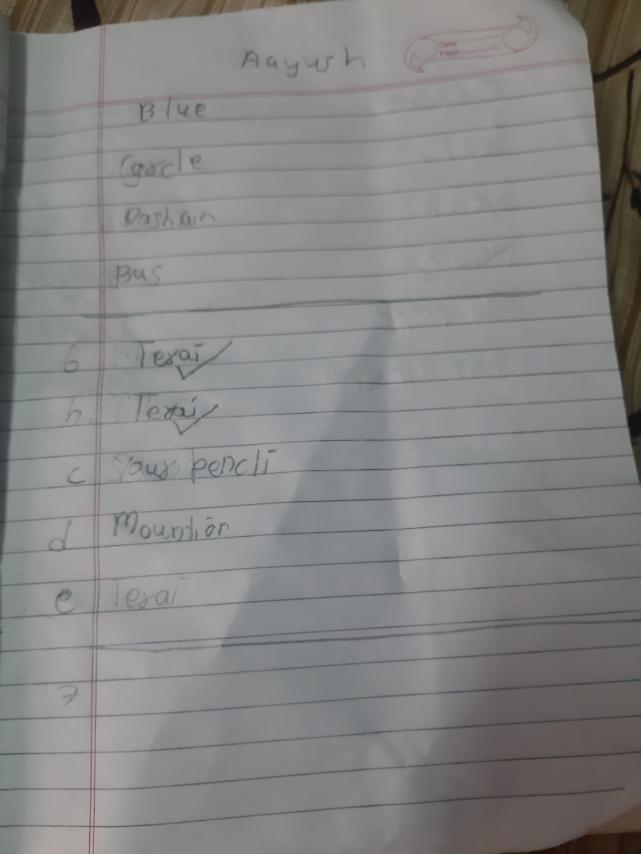 Aayush
Blue
Cgrcle
Dashain
Bus
6 Terai
h Terai
c your pencli
d Mountion
e Terai
7